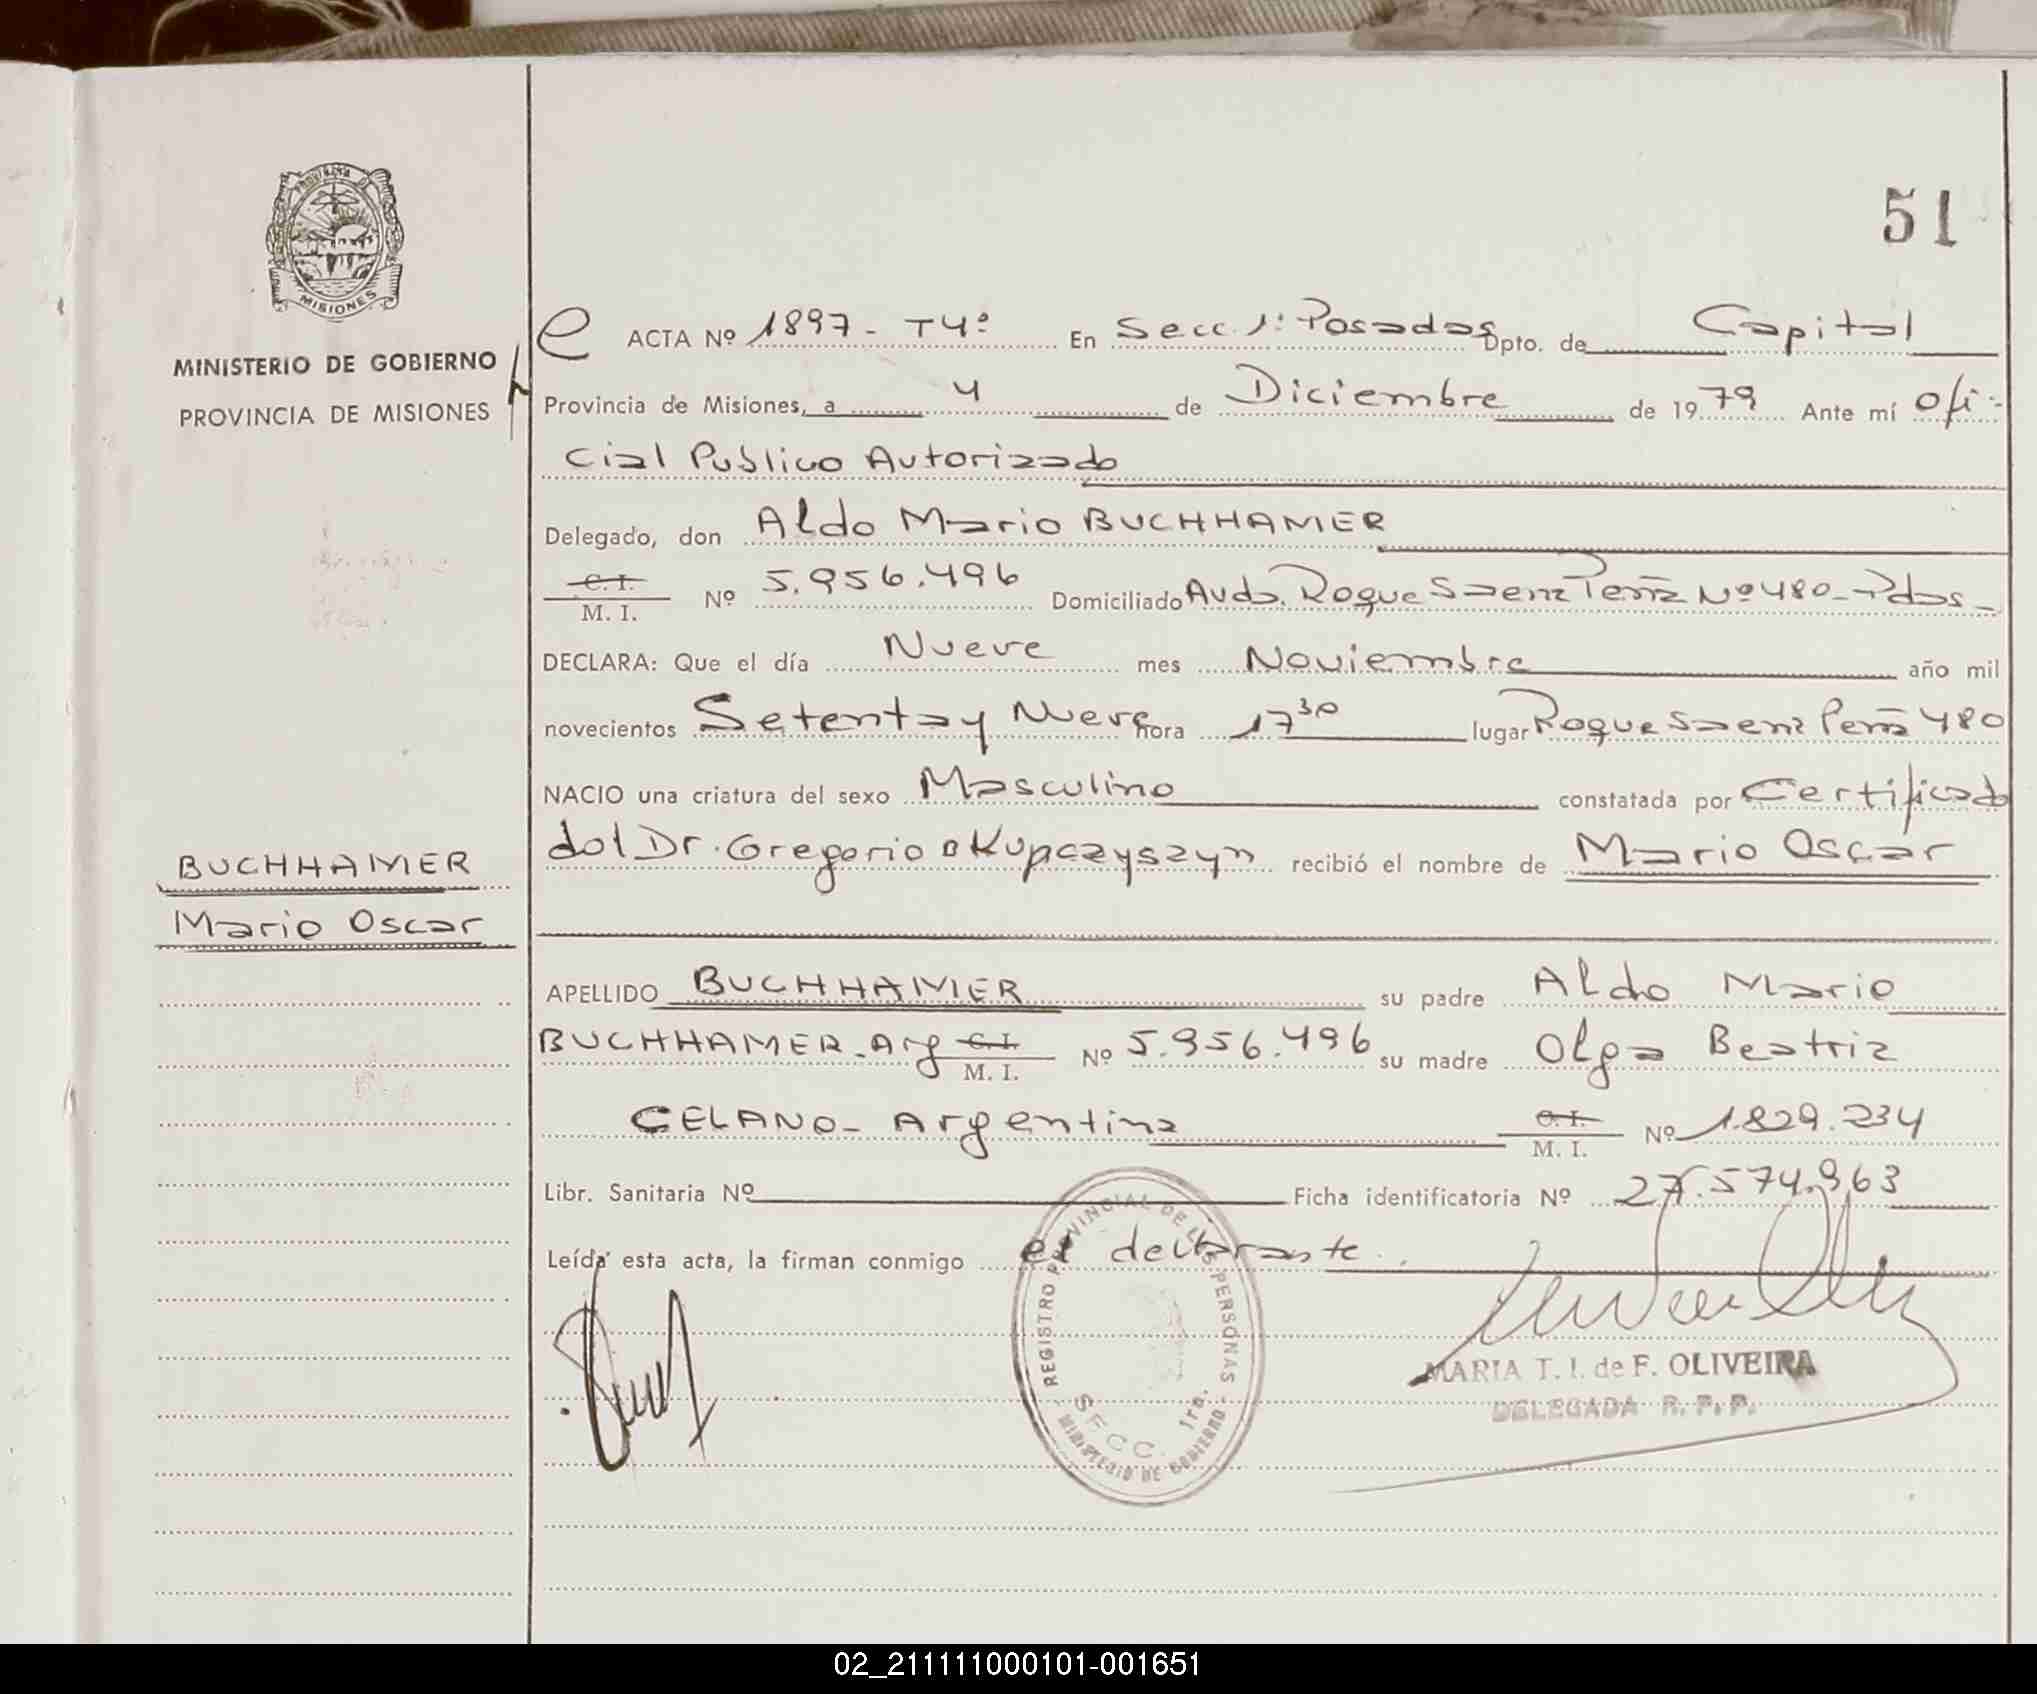 51
PROVINCIA DE
MISIONES
MINISTERIO DE GOBIERNO
PROVINCIA DE MISIONES
ACTA Nº 1897 - T4º En Secc. 1ª Posadas Dpto. de Capital
Provincia de Misiones, a 4 de Diciembre de 1979 Ante mí Ofi-
cial Publico Autorizado
Delegado, don Aldo Mario BUCHHAMER
C. I.
M. I. Nº 5.956.496 Domiciliado Avda. Roque Saenz Peña Nº 480 - Pdas -
DECLARA: Que el día Nueve mes Noviembre año mil
novecientos Setenta y Nueve hora 17 30 lugar Roque Saenz Peña 480
NACIO una criatura del sexo Masculino constatada por Certificado
del Dr. Gregorio Kupczyszyn recibió el nombre de Mario Oscar
BUCHHAMER
Mario Oscar
APELLIDO BUCHHAMER su padre Aldo Mario
BUCHHAMER - Arg C. I.
M. I. Nº 5.956.496 su madre Olga Beatriz
CELANO - Argentina C. I.
M. I. Nº 1.829.234
Libr. Sanitaria Nº Ficha identificatoria Nº 27.574.963
Leída esta acta, la firman conmigo el declarante.
REGISTRO PROVINCIAL DE LAS PERSONAS
SECC. 1ra.
MINISTERIO DE GOBIERNO
MARIA T. I. de F. OLIVEIRA
DELEGADA R. P. P.
02_211111000101-001651